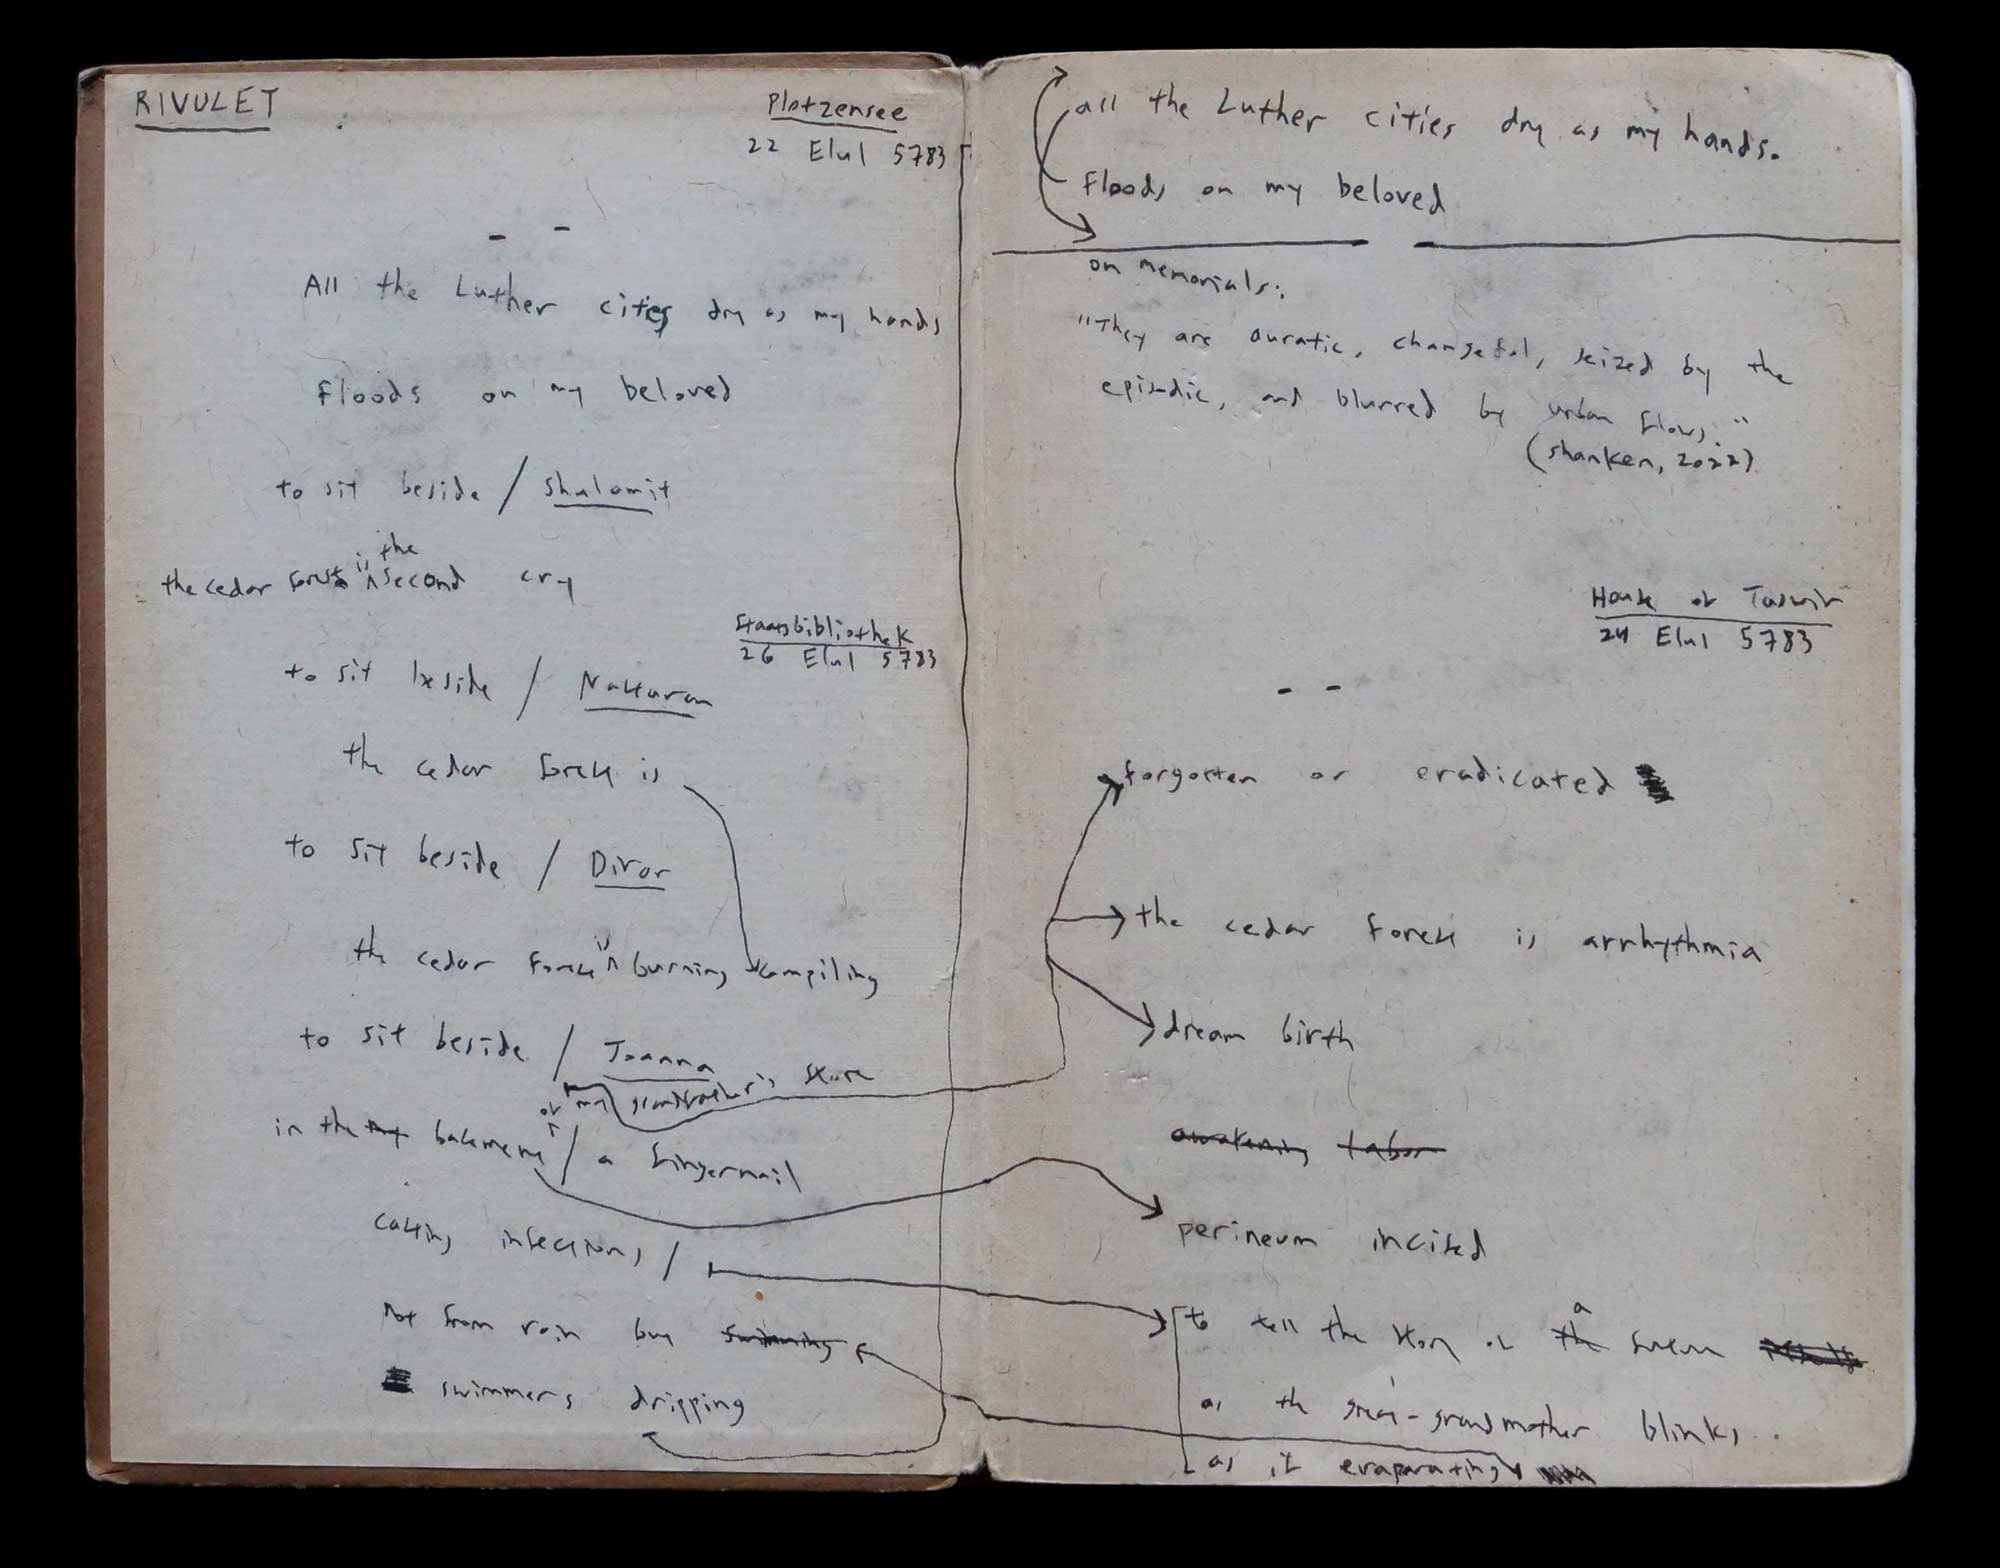 RIVULET
Plotzensee
22 Elul 5783
All the Luther cities dry as my hands
floods on my beloved
to sit beside / Shalamit
the cedar forest is the second cry
Staatsbibliothek
26 Elul 5783
to sit beside /
the cedar forest is
to sit beside / Diror
the cedar forest is burning compiling
to sit beside / Joanna
my grandfather's store
in the my basement of / a fingernail
casting infections /
not from rain but swimming
swimmers dripping
all the Luther cities dry as my hands.
floods on my beloved
on memorials:
"They are auratic, changeful, seized by the
episodic, and blurred by urban flows."
(Shanken, 2022)
House of Taswir
24 Elul 5783
forgotten or eradicated
the cedar forest is arrhythmia
dream birth
awakening labor
perineum incised
to tell the story of the a
as the great-grandmother blinks
as if evaparating